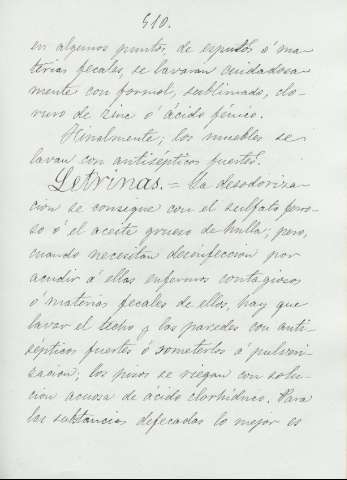 510.
en algunos puntos, de esputos ó ma-
terias fecales, se lavaran cuidadosa-
mente con formol, sublimado, clo-
ruro de zinc ó ácido fénico.
Finalmente; los muebles se
lavan con antisépticos fuertes.
Letrinas. = La desodoriza-
cion se consigue con el sulfato ferro-
so ó el aceite grueso de hulla; pero,
cuando necesitan desinfeccion por
acudir á ellas enfermos contagiosos
ó materias fecales de ellos, hay que
lavar el techo y las paredes con anti-
sépticos fuertes ó someterlos á pulveri-
zacion; los pisos se riegan con solu-
cion acuosa de ácido clorhídrico. Para
las substancias defecadas lo mejor es